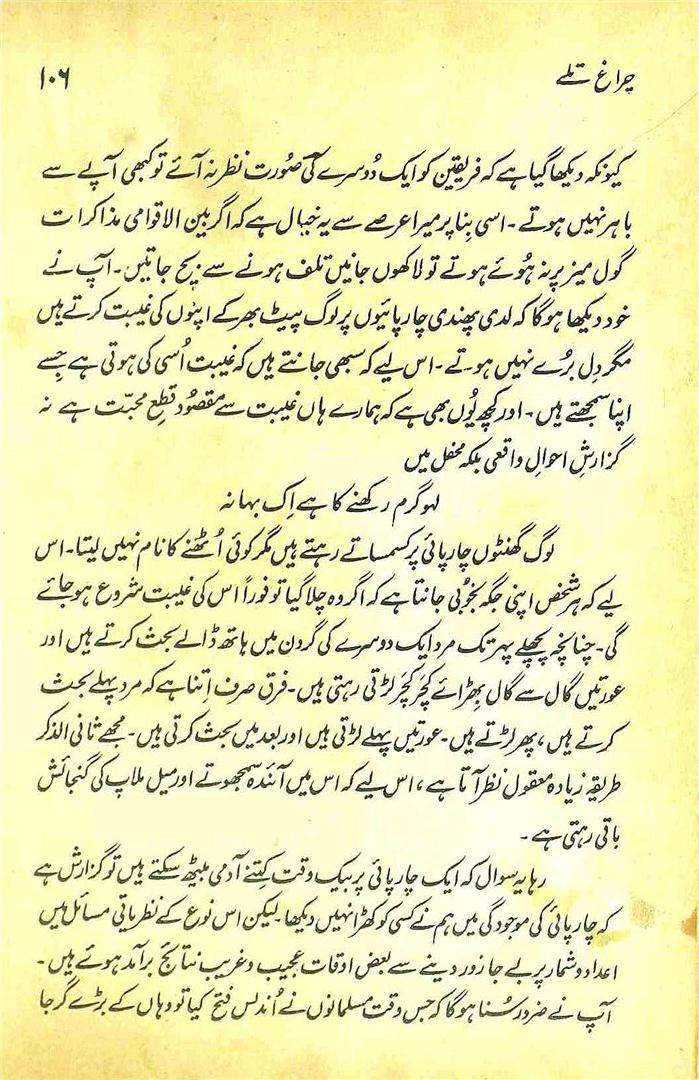 چراغ تلے ۱۰۶
کیونکہ دیکھا گیا ہے کہ فریقین کو ایک دُوسرے کی صُورت نظر نہ آئے تو کبھی آپے سے
باہر نہیں ہوتے۔ اسی بِنا پر میرا عرصے سے یہ خیال ہے کہ اگر بین الاقوامی مذاکرات
گول میز پر نہ ہُوئے ہوتے تو لاکھوں جانیں تلف ہونے سے بچ جاتیں۔ آپ نے
خود دیکھا ہوگا کہ لدی پھندی چارپائیوں پر لوگ پیٹ بھر کے اپنوں کی غیبت کرتے ہیں
مگر دِل بُرے نہیں ہوتے۔ اس لیے کہ سبھی جانتے ہیں کہ غیبت اُسی کی ہوتی ہے جِسے
اپنا سمجھتے ہیں۔ اور کچھ یُوں بھی ہے کہ ہمارے ہاں غیبت سے مقصُود قطعِ محبّت ہے نہ
گزارشِ احوالِ واقعی بلکہ محفل میں
لہو گرم رکھنے کا ہے اِک بہانہ
لوگ گھنٹوں چارپائی پر کسمساتے رہتے ہیں مگر کوئی اُٹھنے کا نام نہیں لیتا۔ اس
لیے کہ ہر شخص اپنی جگہ بخوُبی جانتا ہے کہ اگر وہ چلا گیا تو فوراً اس کی غیبت شروع ہو جائے
گی۔ چنانچہ پچھلے پہر تک مرد ایک دوسرے کی گردن میں ہاتھ ڈالے بحث کرتے ہیں اور
عورتیں گال سے گال بِھڑائے کَچَر کَچَر لڑتی رہتی ہیں۔ فرق صرف اِتنا ہے کہ مرد پہلے بحث
کرتے ہیں، پھر لڑتے ہیں۔ عورتیں پہلے لڑتی ہیں اور بعد میں بحث کرتی ہیں۔ مجھے ثانی الذکر
طریقہ زیادہ معقول نظر آتا ہے، اس لیے کہ اس میں آئندہ سمجھوتے اور میل ملاپ کی گنجائش
باقی رہتی ہے۔
رہا یہ سوال کہ ایک چارپائی پر بیک وقت کِتنے آدمی بیٹھ سکتے ہیں تو گزارش ہے
کہ چارپائی کی موجودگی میں ہم نے کسی کو کھڑا نہیں دیکھا۔ لیکن اس نوع کے نظریاتی مسائل میں
اعداد و شمار پر بے جا زور دینے سے بعض اوقات عجیب و غریب نتائج برآمد ہوئے ہیں۔
آپ نے ضرور سُنا ہوگا کہ جس وقت مسلمانوں نے اُندلس فتح کیا تو وہاں کے بڑے گرجا